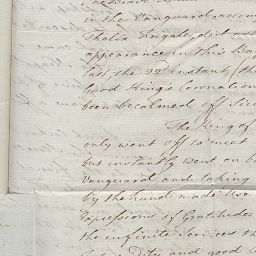 in the Vanguard accom
Thalia Frigate, did not
appearance in this Bay
last, the 22d instant, (the
Good King's Coronation
been becalmed off Sici
The King of
only went off to meet
but instantly went on bo
Vanguard and taking
by the hand made Use
expressions of Gratitude
the infinite Services th
duty and good